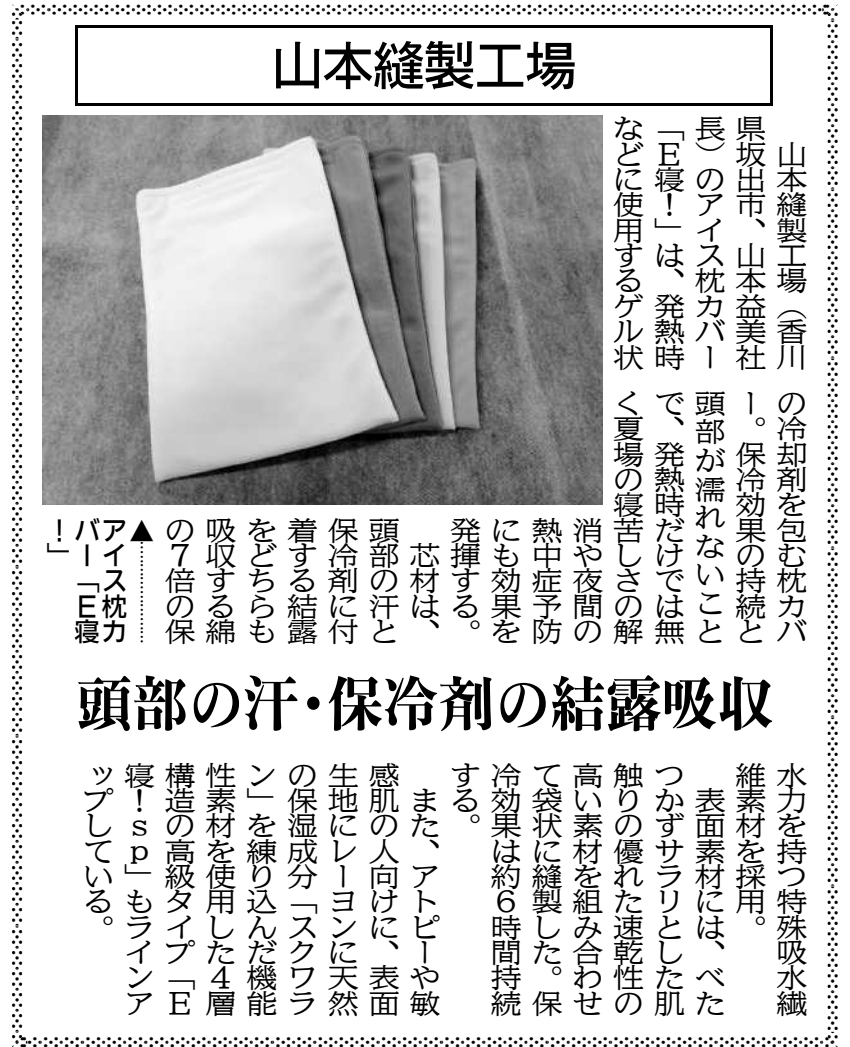 山本縫製工場
山本縫製工場（香川
県坂出市、山本益美社
長）のアイス枕カバー
「Ｅ寝！」は、発熱時
などに使用するゲル状
の冷却剤を包む枕カバ
ー。保冷効果の持続と
頭部が濡れないこと
で、発熱時だけでは無
く夏場の寝苦しさの解
消や夜間の
熱中症予防
にも効果を
発揮する。
芯材は、
頭部の汗と
保冷剤に付
着する結露
をどちらも
吸収する綿
の７倍の保
▲
アイス枕カ
バー「Ｅ寝
！」
頭部の汗・保冷剤の結露吸収
水力を持つ特殊吸水繊
維素材を採用。
表面素材には、べた
つかずサラリとした肌
触りの優れた速乾性の
高い素材を組み合わせ
て袋状に縫製した。保
冷効果は約６時間持続
する。
また、アトピーや敏
感肌の人向けに、表面
生地にレーヨンに天然
の保湿成分「スクワラ
ン」を練り込んだ機能
性素材を使用した４層
構造の高級タイプ「Ｅ
寝！ｓｐ」もラインア
ップしている。